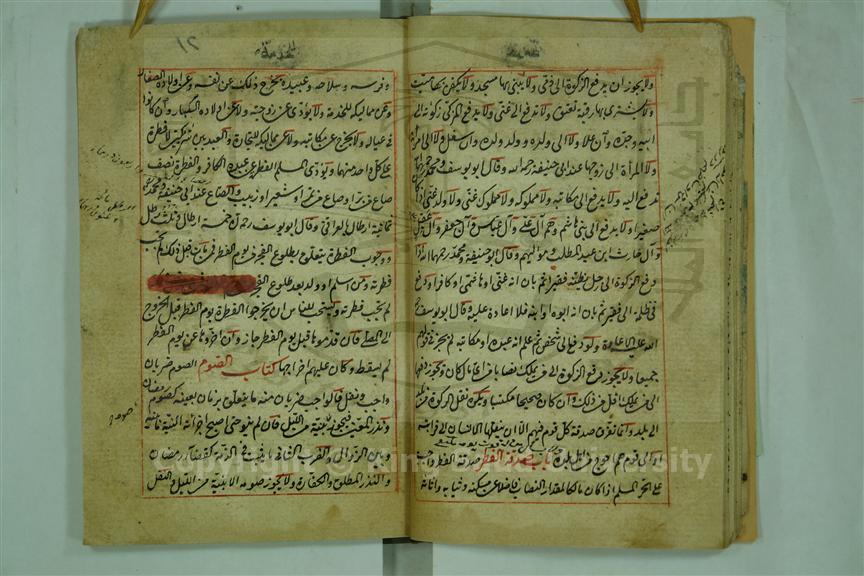 ولا يجوز ان يدفع الزكوة الى ذمى ولا يبنى بها مسجد ولا يكفن بها ميت
ولا يشترى بها رقبة تعتق ولا يدفع الى غنى ولا يدفع المزكى زكوته الى
ابيه وجده وان علا ولا الى ولده وولد ولده وان سفل ولا الى امرأته
ولا المرأة الى زوجها عند ابى حنيفة رحمه الله وقال ابو يوسف ومحمد رحمهما الله
تدفع اليه ولا يدفع الى مكاتبه ولا مملوكه ولا مملوك غنى ولا ولد غنى اذا كان
صغيرا ولا يدفع الى بنى هاشم وهم آل على وآل عباس وآل جعفر وآل عقيل
وآل حارث ابن عبد المطلب ومواليهم وقال ابو حنيفة ومحمد رحمهما الله اذا
دفع الزكوة الى رجل يظنه فقيرا ثم بان انه غنى او هاشمى او كافر او دفع
فى ظلمة الى فقير ثم بان انه ابوه او ابنه فلا اعادة عليه وقال ابو يوسف رحمه
الله عليه الاعادة ولو دفع الى شخص ثم علم انه عبده او مكاتبه لم يجز فى قولهم
جميعا ولا يجوز دفع الزكوة الى من يملك نصابا من اى مال كان ويجوز دفعها
الى من يملك اقل من ذلك وان كان صحيحا مكتسبا ويكره نقل الزكوة من بلد
الى بلد وانما تفرق صدقة كل قوم فيهم الا ان ينقلها الانسان الى قرابته
او الى قوم هم احوج من اهل بلده باب صدقة الفطر صدقة الفطر واجبة
على الحر المسلم اذا كان مالكا لمقدار النصاب فاضلا عن مسكنه وثيابه واثاثه
٢١
وفرسه وسلاحه وعبيده يخرج ذلك عن نفسه وعن اولاده الصغار
وعن مماليكه للخدمة ولا يؤدى عن زوجته ولا عن اولاده الكبار وان كانوا
فى عياله ولا يخرج عن مكاتبه ولا عن مماليكه للتجارة والعبد بين شريكين لا فطرة
على كل واحد منهما ويؤدى المسلم الفطرة عن عبده الكافر والفطرة نصف
صاع من بر او صاع من تمر او شعير او زبيب والصاع عند ابى حنيفة ومحمد
ثمانية ارطال بالعراقى وقال ابو يوسف رحمه الله خمسة ارطال وثلث رطل
ووجوب الفطرة يتعلق بطلوع الفجر من يوم الفطر فمن مات قبل ذلك لم يجب
فطرته ومن اسلم او ولد بعد طلوع الفجر
لم يجب فطرته ويستحب للناس ان يخرجوا الفطرة يوم الفطر قبل الخروج
الى المصلى فان قدموها قبل يوم الفطر جاز وان اخروها عن يوم الفطر
لم يسقط وكان عليهم اخراجها كتاب الصوم الصوم ضربان
واجب ونفل فالواجب ضربان منه ما يتعلق بزمان بعينه كصوم رمضان
والنذر المعين فيجوز بنية من الليل فان لم ينو حتى اصبح اجزأته النية ما بينه
وبين الزوال والضرب الثانى ما يثبت فى الذمة كقضاء رمضان
والنذر المطلق والكفارة ولا يجوز صومه الا بنية من الليل والنفل
Copyright © King Saud University